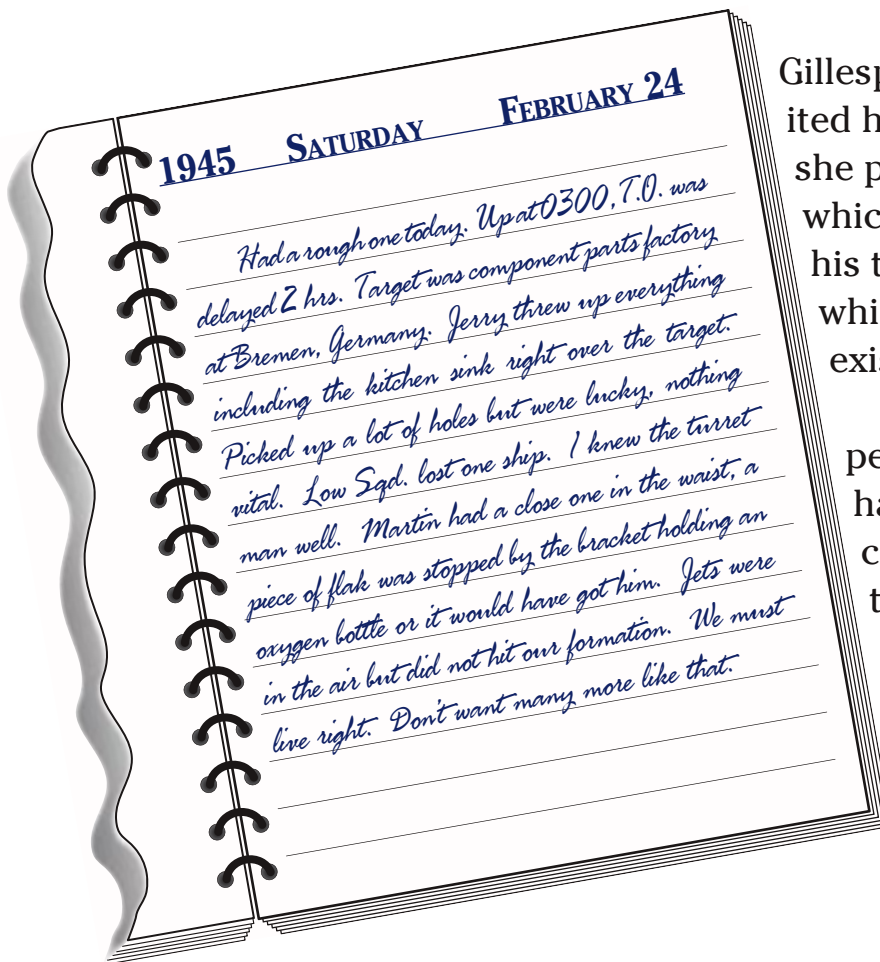 1945 SATURDAY FEBRUARY 24
Had a rough one today. Up at 0300, T.O. was
delayed 2 hrs. Target was component parts factory
at Bremen, Germany. Jerry threw up everything
including the kitchen sink right over the target.
Picked up a lot of holes but were lucky, nothing
vital. Low Sqd. lost one ship. I knew the turret
man well. Martin had a close one in the waist, a
piece of flak was stopped by the bracket holding an
oxygen bottle or it would have got him. Jets were
in the air but did not hit our formation. We must
live right. Don't want many more like that.
Gillesp
ited h
she p
whic
his t
whi
exis
pe
ha
c
t